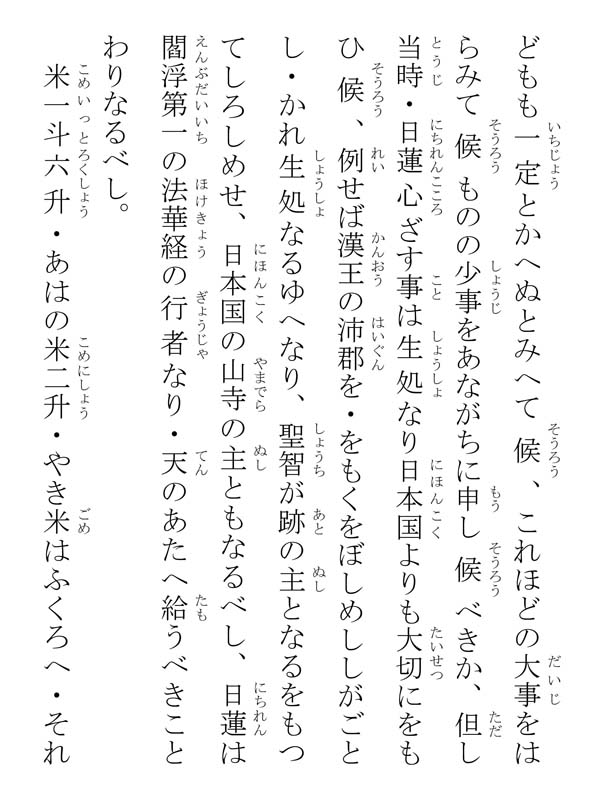 どもも一定とかへぬとみへて候、これほどの大事をは
らみて候ものの少事をあながちに申し候べきか、但し
当時・日蓮心ざす事は生処なり日本国よりも大切にをも
ひ候、例せば漢王の沛郡を・をもくをぼしめししがごと
し・かれ生処なるゆへなり、聖智が跡の主となるをもつ
てしろしめせ、日本国の山寺の主ともなるべし、日蓮は
閻浮第一の法華経の行者なり・天のあたへ給うべきこと
わりなるべし。
米一斗六升・あはの米二升・やき米はふくろへ・それ